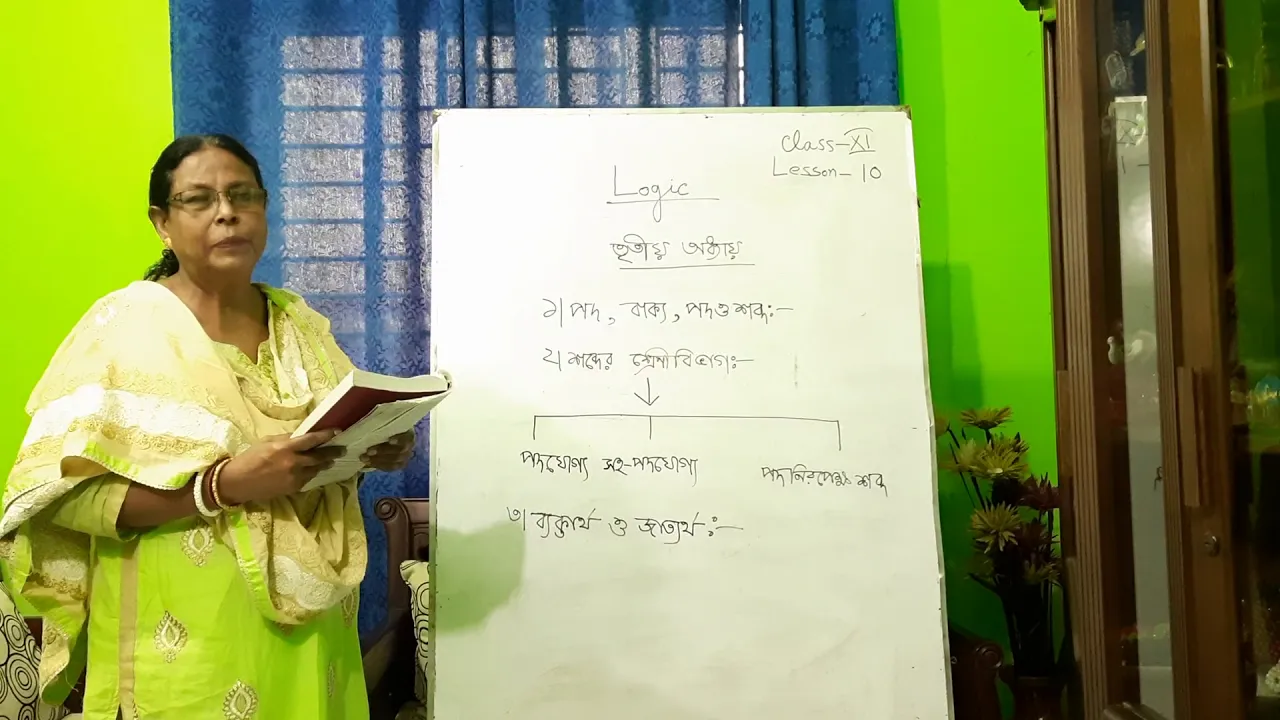 Class-XI
Lesson-10
Logic
তৃতীয় অধ্যায়
১| পদ, বাক্য, পদ ও শব্দ:-
২| শব্দের শ্রেণীবিভাগ:-
পদযোগ্য সহ-পদযোগ্য পদনিরপেক্ষ শব্দ
৩| ব্যক্ত্যর্থ ও জাত্যর্থ:-